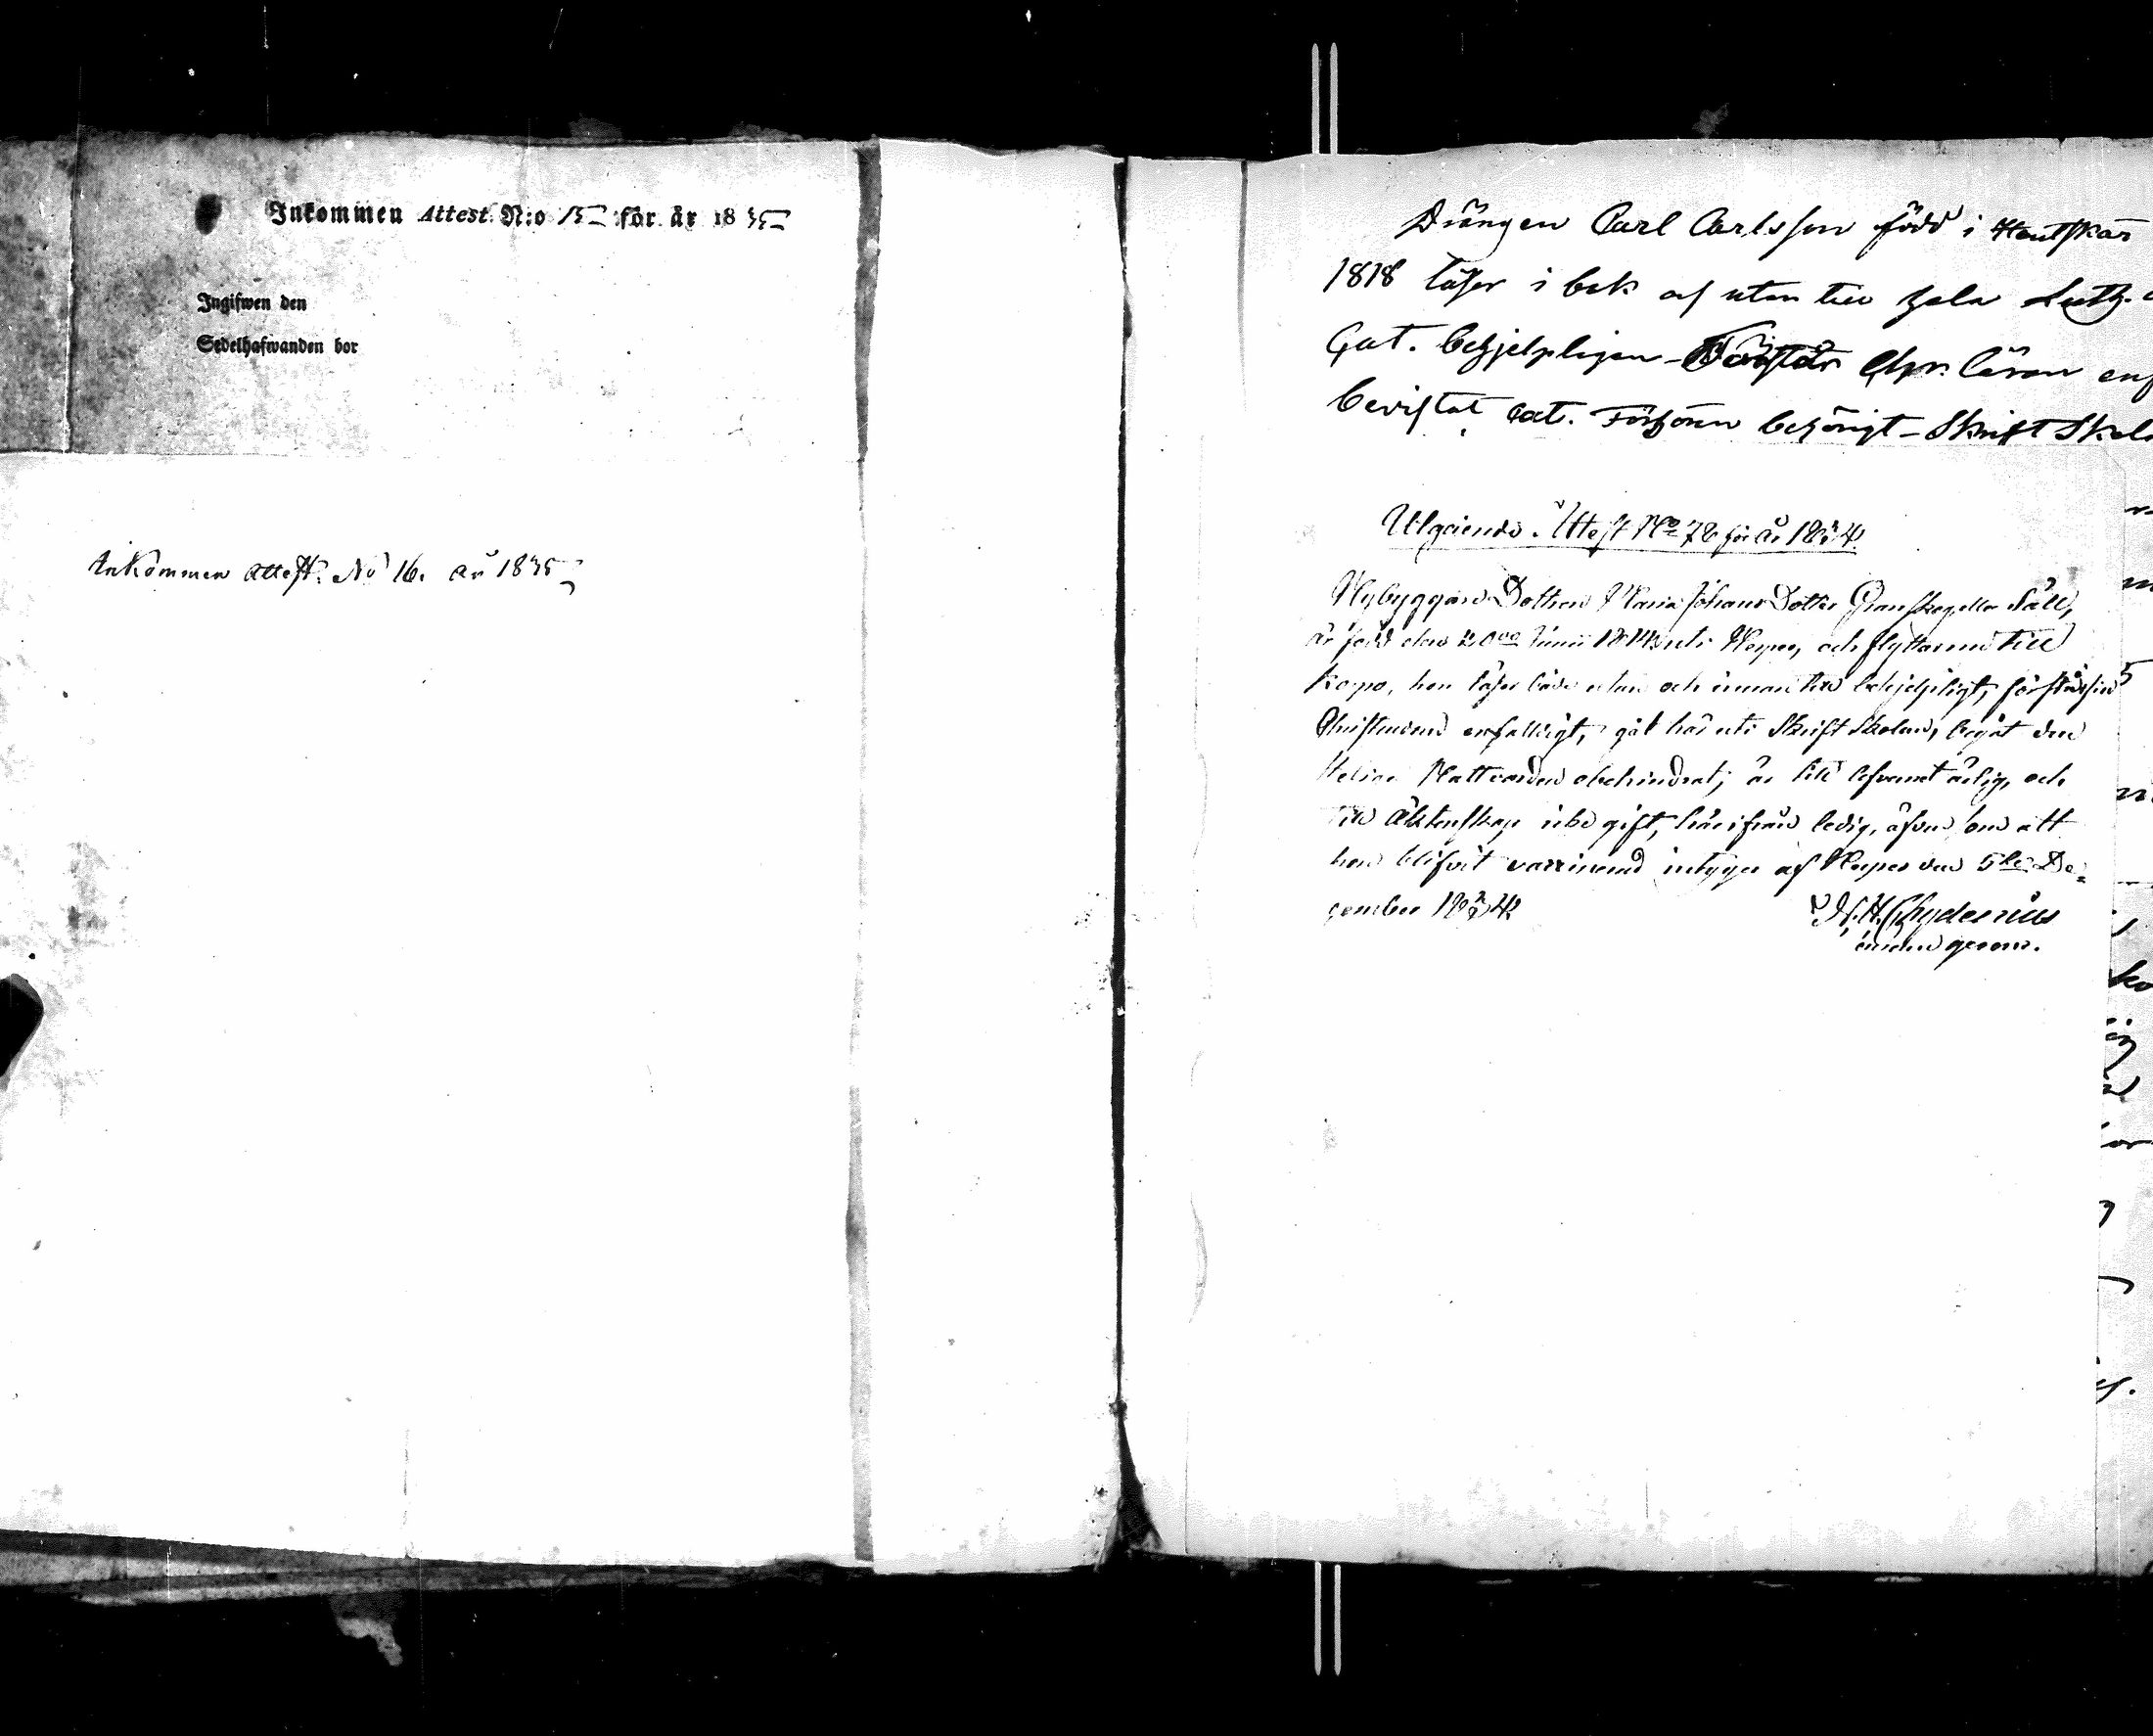 Inkommen Attest. N:o 15 för år 1835
Ingifwen den
Sedelhafwanden bor
Inkommen attest. No 16. år 1835
Drängen Carl Carlsson född i Houtskär
1818 läser i bok af utan till hela Luth.
Cat. behjelpligen - Förstår Chr. läran
bevistat Cat. Förhören behörigt - Skrift Skola
Utgående Attest No 78 för år 1834.
Nybyggare Dottren Maria Johans Dotter
är född den 20 Junii uti och flyttar nu till
Korpo, hon läser både utan och innan till behjelpligt, förstår sin
Christendom enfaldigt, gåt här uti Skrift Skolan, begåt den
Heliga Nattvarden obehindrat; är till lefvernet ärlig, och
till Äktenskap icke gift, härifrån ledig, äfven som att
hon blifvit vaccinerad intygar af den 5te De-
cember 1834
Chydenius